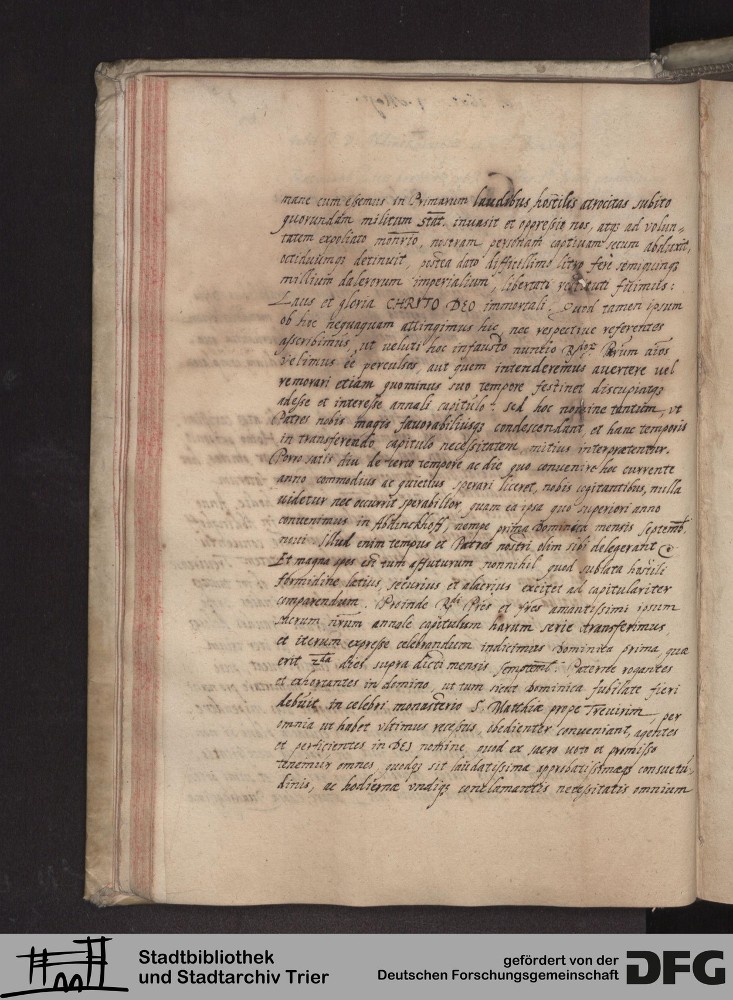 mane cum essemus in Primarum laudibus, hostilis atrocitas subito
quorundam militum Stat. inuasit et oppressio nos, atqꝫ ad volun=
tatem expoliato mon̄rio, nostram personam captiuam secum abduxit,
octiduumqꝫ detinuit, postea dato difficillimo litro fere semiquinqꝫ
millium dalerorum imperialium, libertati restituti fuimus:
Laus et gloria CHRISTO DEO immortali. Quod tamen ipsum
ob hoc nequaquam attingimus hic, nec respectiue referentes
asscribimus, ut veluti hoc infausto nuntio Patrum aīos
velimus eē perculsos, aut quem intenderemus auertere vel
remorari etiam quominus suo tempore festinet discupiatqꝫ
adesse et interesse annali capitulo: sed hoc nomine tantum, vt
Patres nobis magis fauorabiliusqꝫ condescendant, et hanc temporis
in transferendo capitulo necessitatem mitius interpraetentur.
Porro satis diu de certo tempore ac die quo conuenire hoc currente
anno commodius ac quietius sperari liceret, nobis cogitantibus, nulla
uidetur nec occurrit sperabilior, quam ea ipsa quo superiori anno
conuenimus in Abdinckhoff, nempe prima Dominica mensis Septemb.
noui. Illud enim tempus et Patres nostri olim sibi delegerant
Et magna spes est tum affuturum nonnihil quod sublata hostili
formidine latius, securius et alacrius excitet ad capitulariter
comparendum. Proinde R̄di Pr̄es et fr̄es amantissimi ipsum
sacrum nr̄um annale capitulum harum serie transferimus,
et iterum expresse celebrandum indicimus Dominica prima, quae
erit 2ta dies supra dicti mensis Septemb: Paterne rogantes
et exhortantes in domino, ut tum sicut dominica Jubilate fieri
debuit in celebri monasterio S. Matthiae prope Treuirim, per
omnia ut habet vltimus recessus, obedienter conueniant, agentes
et perficientes in DEI nomine, quod ex sacro uoto et promisso
tenemur omnes, quodqꝫ sit laudatissimae approbatissimaeqꝫ consuetu=
dinis, ac hodiernae vndiqꝫ conclamantis necessitatis omnium
Stadtbibliothek
und Stadtarchiv Trier
gefördert von der
Deutschen Forschungsgemeinschaft
DFG